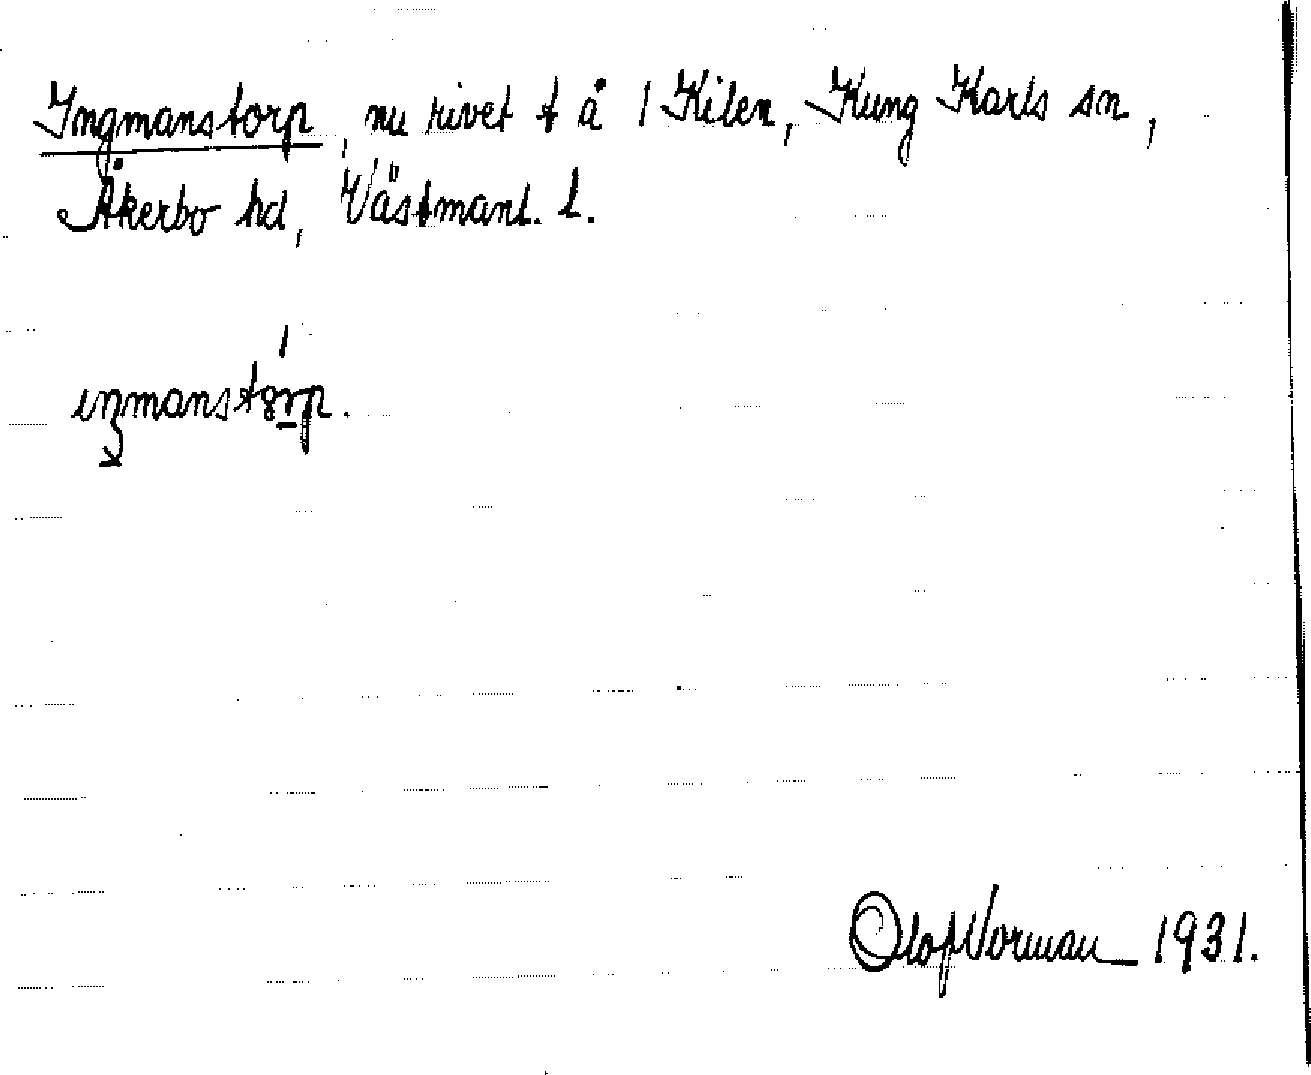 Ingmanstorp, nu rivet t å 1 Kilen, Kung Karls sn,
Åkerbo hd, Västmanl. l.
iŋmanstorp.
Olof Norman 1931.